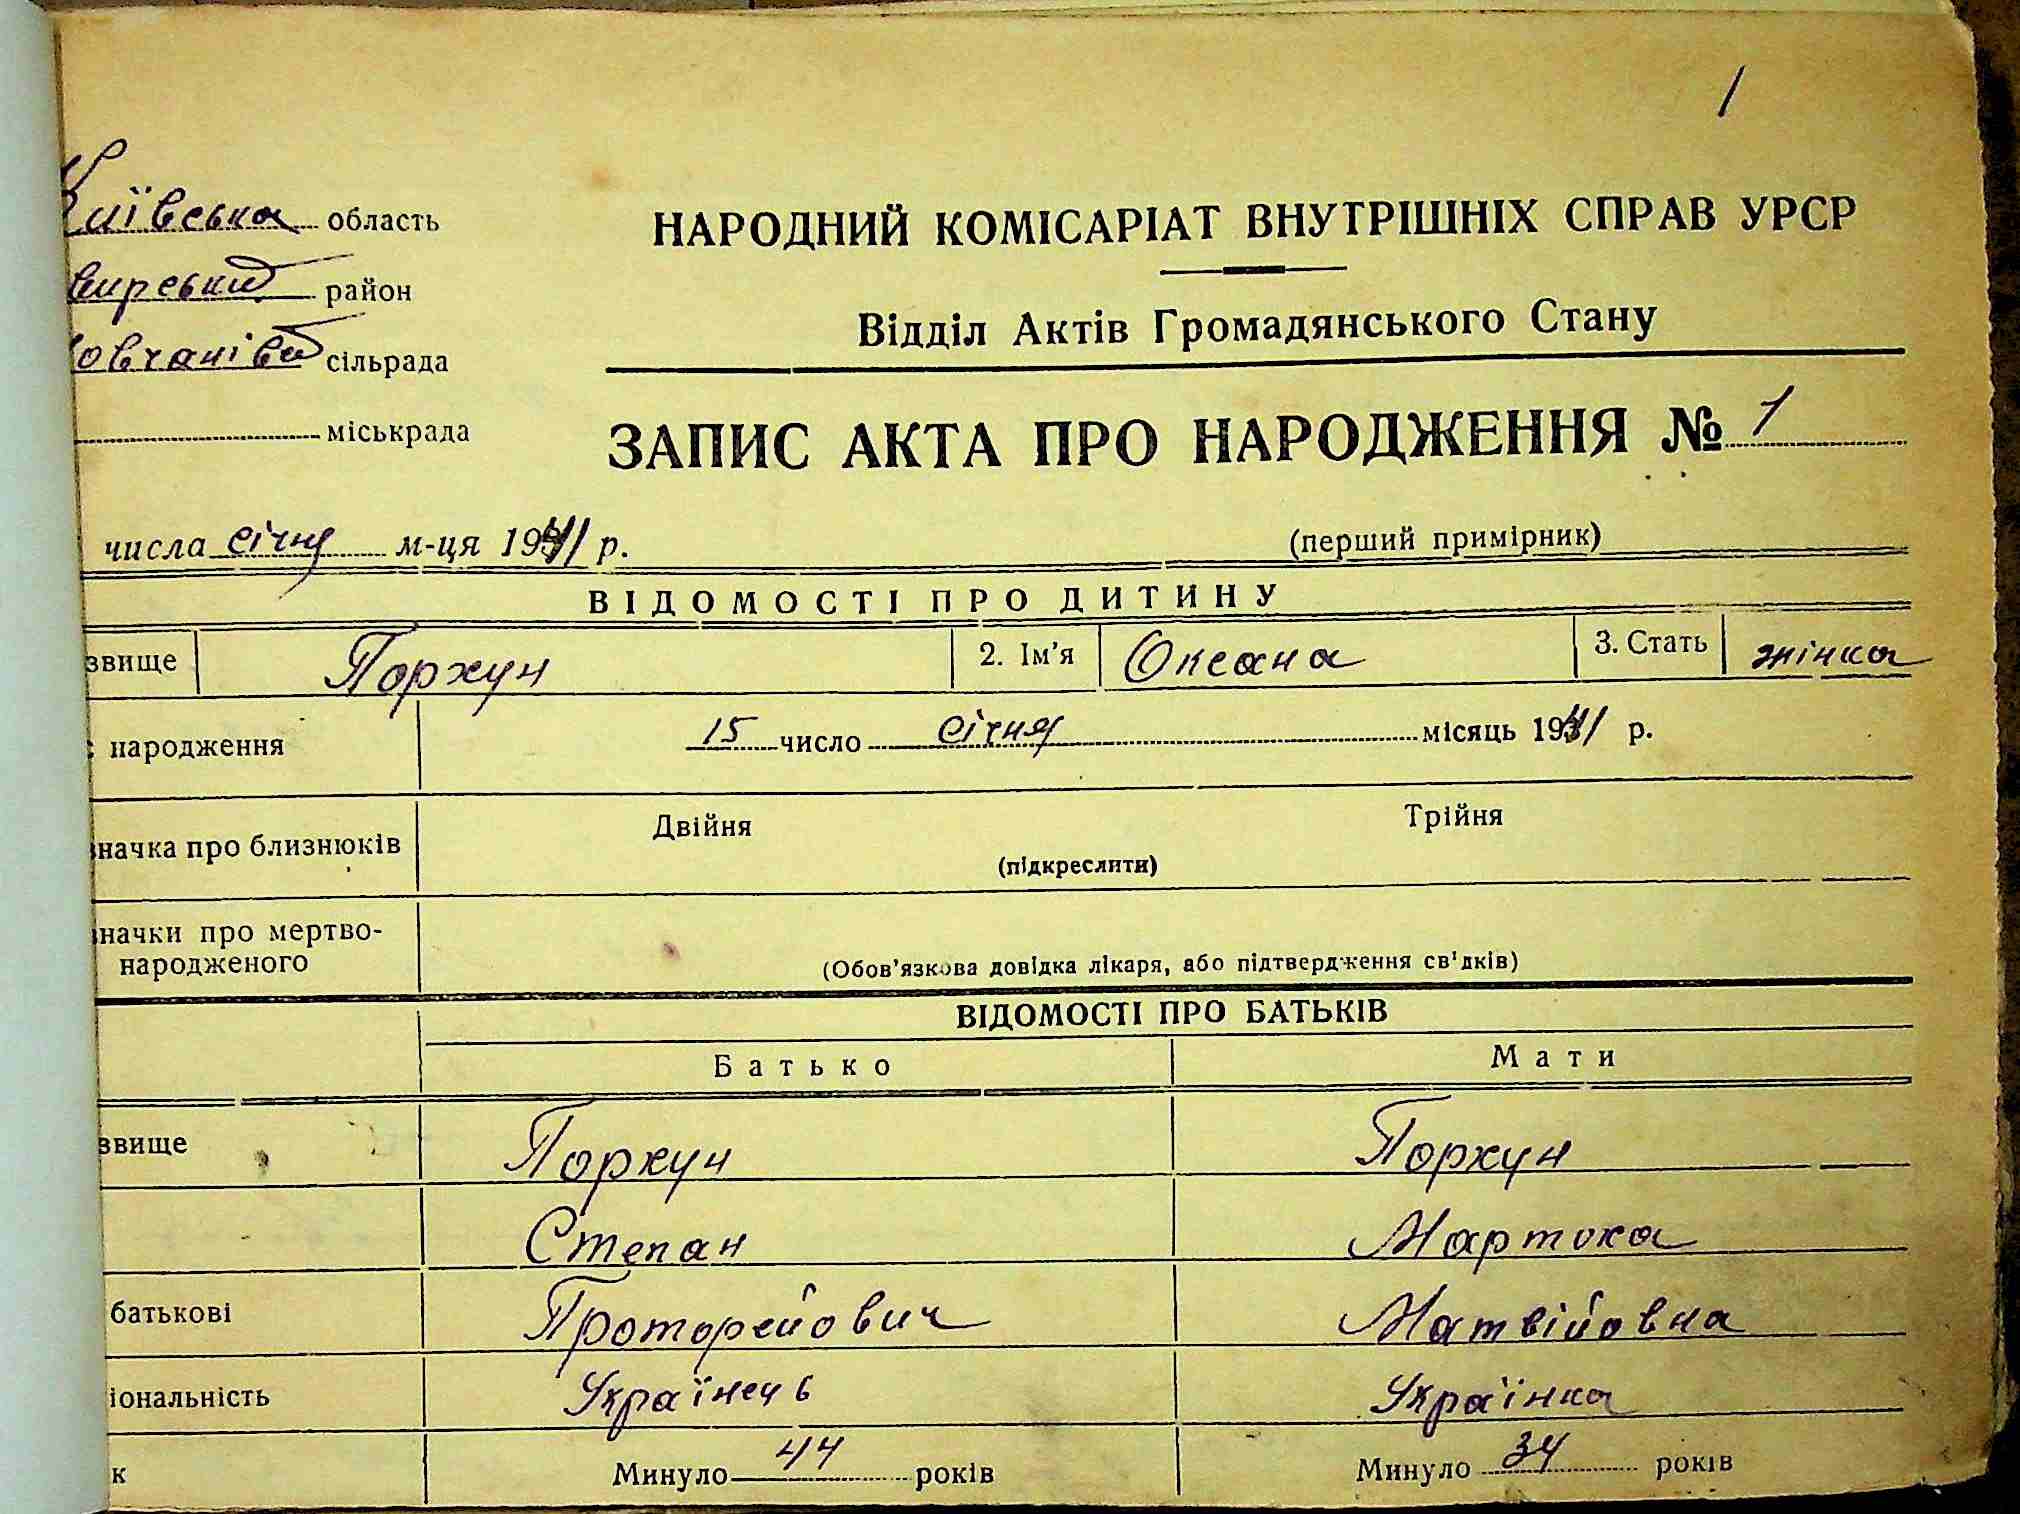 1
Київська область
НАРОДНИЙ КОМІСАРІАТ ВНУТРІШНІХ СПРАВ УРСР
район
Відділ Актів Громадянського Стану
сільрада
міськрада
ЗАПИС АКТА ПРО НАРОДЖЕННЯ № 1
числа січня м-ця 1941 р.
(перший примірник)
ВІДОМОСТІ ПРО ДИТИНУ
звище Порхун 2. Ім'я Оксана 3. Стать жінка
народження 15 число січня місяць 1941 р.
значка про близнюків Двійня Трійня
(підкреслити)
значки про мертво-
народженого
(Обов'язкова довідка лікаря, або підтвердження свідків)
ВІДОМОСТІ ПРО БАТЬКІВ
Батько Мати
звище Порхун Порхун
Степан
батькові Матвійовна
іональність Українець Українка
к Минуло 44 років Минуло 34 років